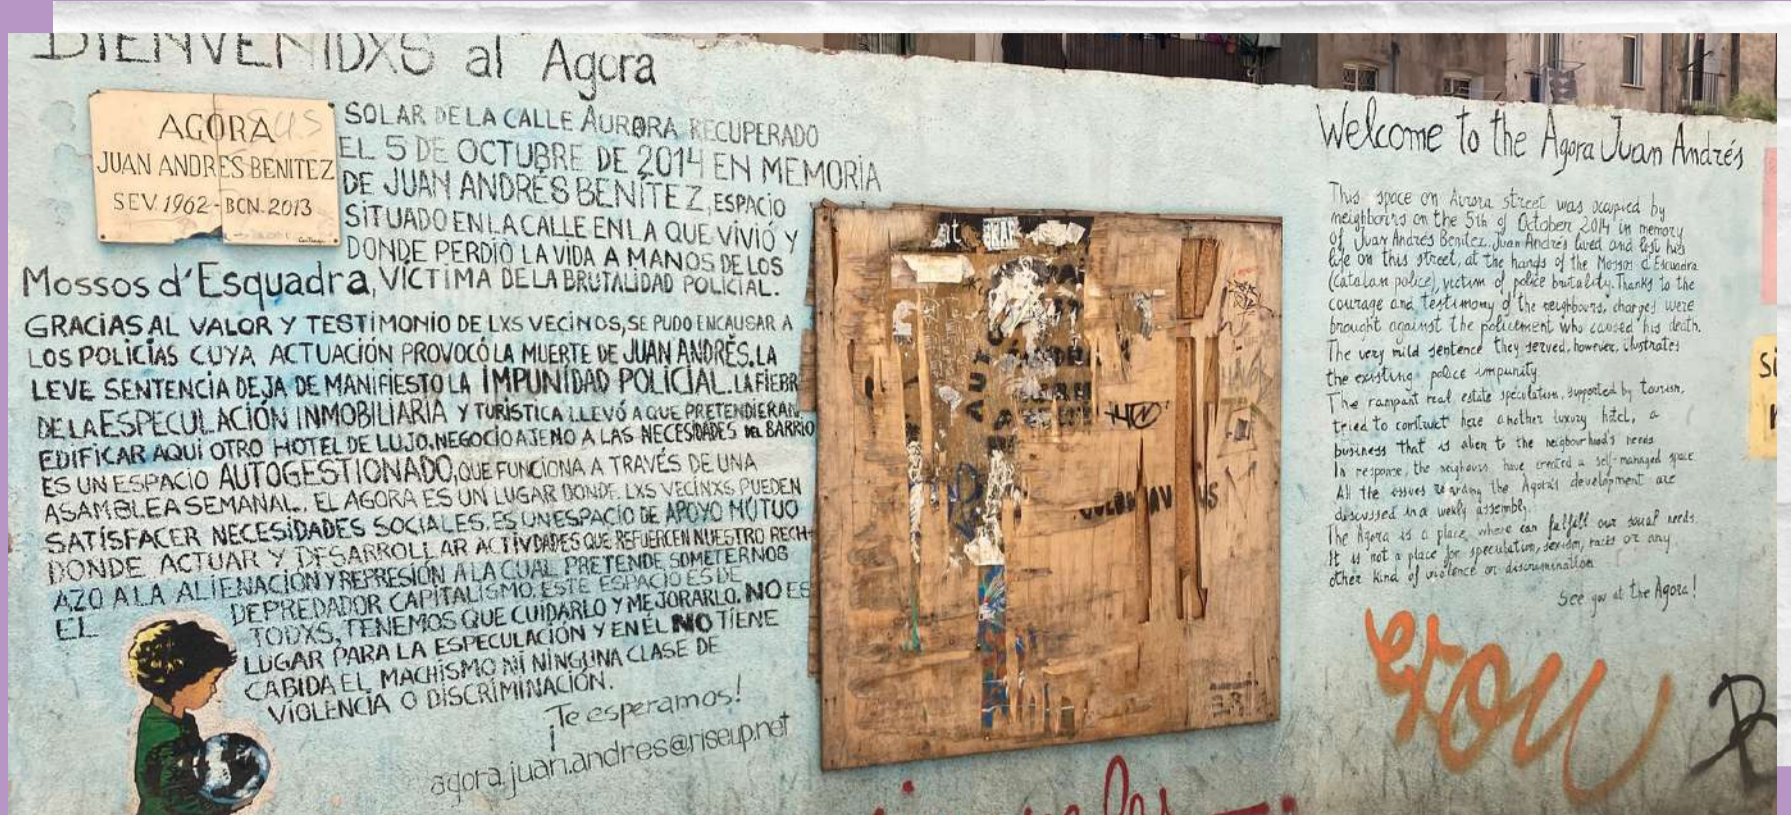 BIENVENIDXS al Agora
AGORA
JUAN ANDRES BENITEZ
SEV. 1962 - BCN. 2013
SOLAR DE LA CALLE AURORA RECUPERADO
EL 5 DE OCTUBRE DE 2014 EN MEMORIA
DE JUAN ANDRÉS BENÍTEZ, ESPACIO
SITUADO EN LA CALLE EN LA QUE VIVIÓ Y
DONDE PERDIÓ LA VIDA A MANOS DE LOS
Mossos d'Esquadra, VÍCTIMA DE LA BRUTALIDAD POLICIAL.
GRACIAS AL VALOR Y TESTIMONIO DE LXS VECINOS, SE PUDO ENCAUSAR A
LOS POLICÍAS CUYA ACTUACIÓN PROVOCÓ LA MUERTE DE JUAN ANDRÉS. LA
LEVE SENTENCIA DEJA DE MANIFIESTO LA IMPUNIDAD POLICIAL. LA FIEBR
DE LA ESPECULACIÓN INMOBILIARIA Y TURÍSTICA LLEVÓ A QUE PRETENDIERAN
EDIFICAR AQUÍ OTRO HOTEL DE LUJO, NEGOCIO AJENO A LAS NECESIDADES DEL BARRIO
ES UN ESPACIO AUTOGESTIONADO, QUE FUNCIONA A TRAVÉS DE UNA
ASAMBLEA SEMANAL. EL AGORA ES UN LUGAR DONDE LXS VECINXS PUEDEN
SATISFACER NECESIDADES SOCIALES. ES UN ESPACIO DE APOYO MÚTUO
DONDE ACTUAR Y DESARROLLAR ACTIVDADES QUE REFUERCEN NUESTRO RECH-
AZO A LA ALIENACIÓN Y REPRESIÓN A LA CUAL PRETENDE SOMETERNOS
EL DEPREDADOR CAPITALISMO. ESTE ESPACIO ES DE
TODXS, TENEMOS QUE CUIDARLO Y MEJORARLO. NO ES
LUGAR PARA LA ESPECULACIÓN Y EN ÉL NO TIENE
CABIDA EL MACHISMO NI NINGUNA CLASE DE
VIOLENCIA O DISCRIMINACIÓN.
¡Te esperamos!
agora.juan.andres@riseup.net
Welcome to the Agora Juan Andrés
This space on Aurora street was occupied by
neighbors on the 5th of October 2014 in memory
of Juan Andrés Benítez. Juan Andrés lived and lost his
life on this street, at the hands of the Mossos d'Escuadra
(Catalan police), victim of police brutality. Thanks to the
courage and testimony of the neighbours, charges were
brought against the policement who caused his death.
The very mild sentence they served, however, illustrates
the existing police impunity
The rampant real estate speculation, supported by tourism,
tried to contruct here another luxury hotel, a
business that is alien to the neigbourhood's needs
In response, the neighours have created a self-managed space
All the issues regarding the Agora's development are
discussed in a weekly assembly.
The Agora is a place where can fulfill our social needs.
It is not a place for speculation, sexism, racis or any
other kind of violence or discrimination
See you at the Agora!
you